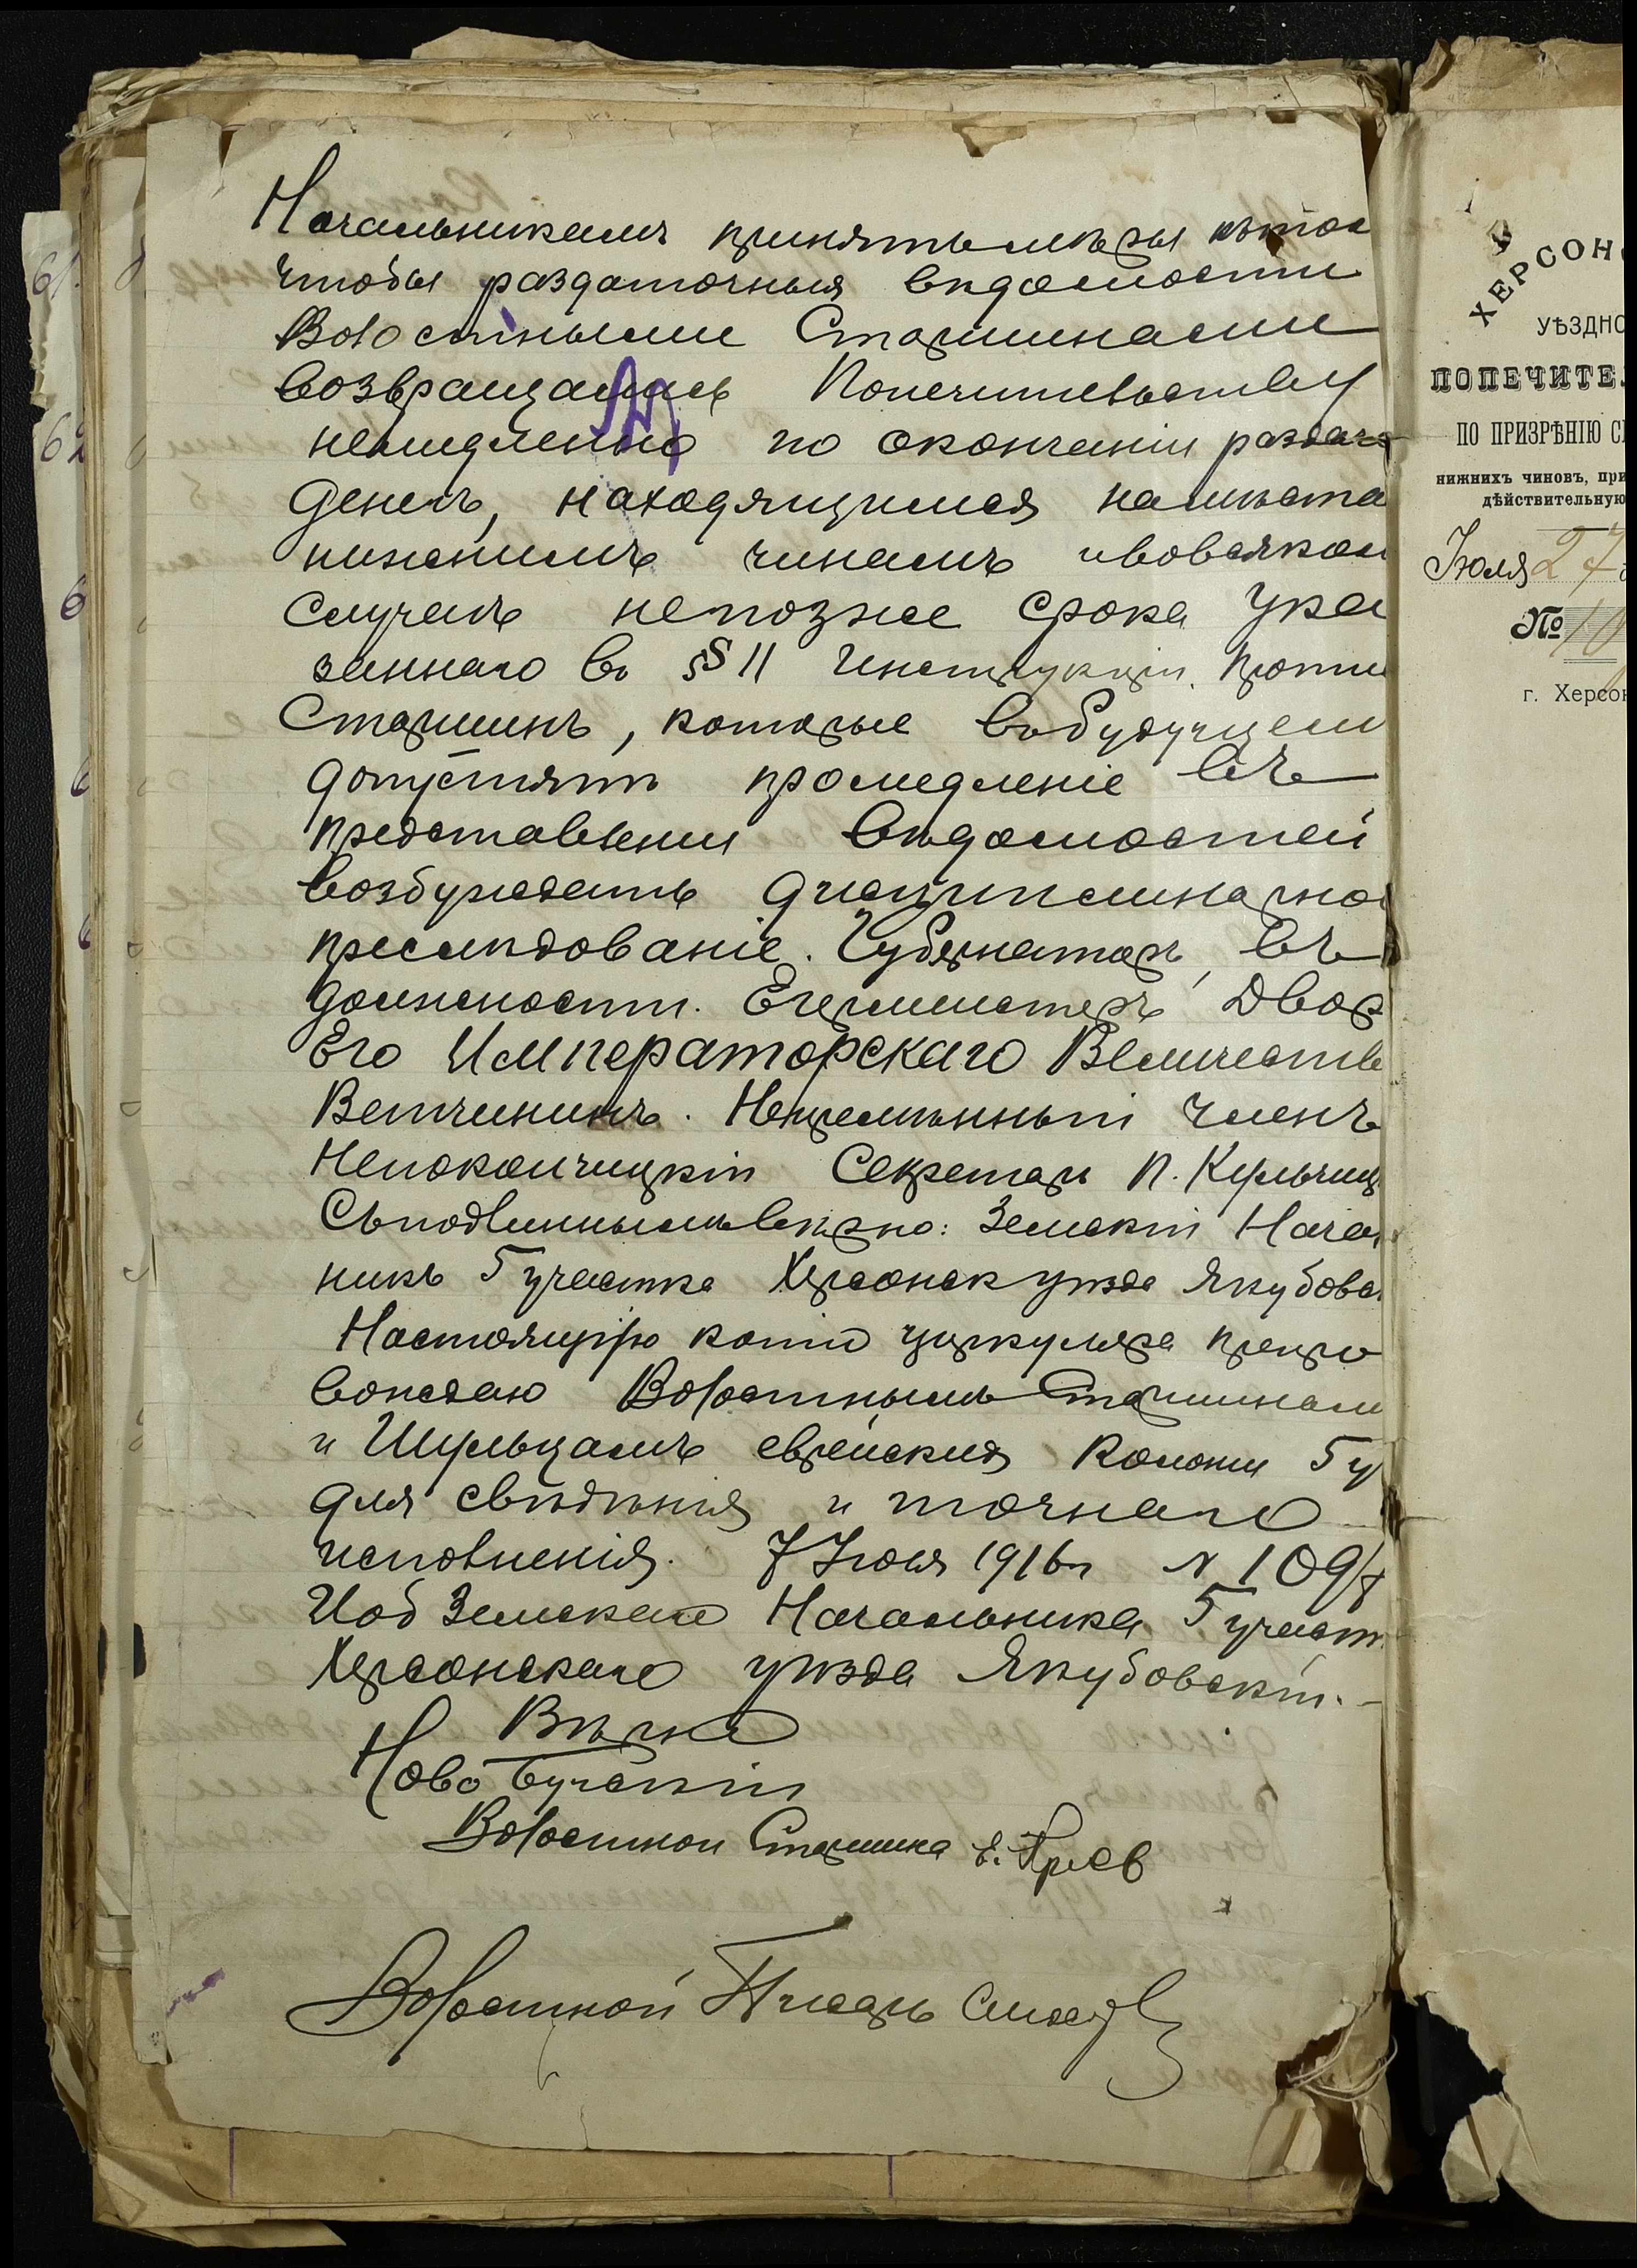 Начальникамъ принять мѣры къ тому
чтобы раздаточныя вѣдомости
Волостными Старшинами
возвращались Попечительству
немедленно по окончаніи раздачи
денегъ, находящимся на мѣста
нижнимъ чинамъ и во всякомъ
случаѣ не позже срока ука
заннаго въ § 11 Инструкціи. Проти
Старшинъ, которые въ будущем
допустятъ промедленіе въ
представленіи вѣдомостей
возбуждать дисциплинарно
преслѣдованіе. Губернаторъ, въ
должности Егермистеръ Двор
Его Императорскаго Величеств
Ветчининъ. Непремѣнный Членъ
Непокойчицкій Секретарь П.
Съ подлиннымъ вѣрно: Земскій Нача
никъ 5 участка Херсонск уѣзда Якубовс
Настоящую копію циркуляра препро
вождаю Волостнымъ Старшинам
и Шульцамъ еврейскихъ колоній 5 у
для свѣдѣнія и точнаго
исполненія. 7 Іюля 1916 г № 1097
И об Земскаго Начальника 5 участ
Херсонскаго уѣзда Якубовскій.
Вѣрно
Ново Бугскій
Волостной Старшина Е.
Волостной Писарь
61.
62
6
6
6
ХЕРСОН
УѢЗДНО
ПОПЕЧИТЕЛ
ПО ПРИЗРѢНІЮ С
нижнихъ чиновъ, при
дѣйствительную
Іюля 27
№ 10
г. Херсон